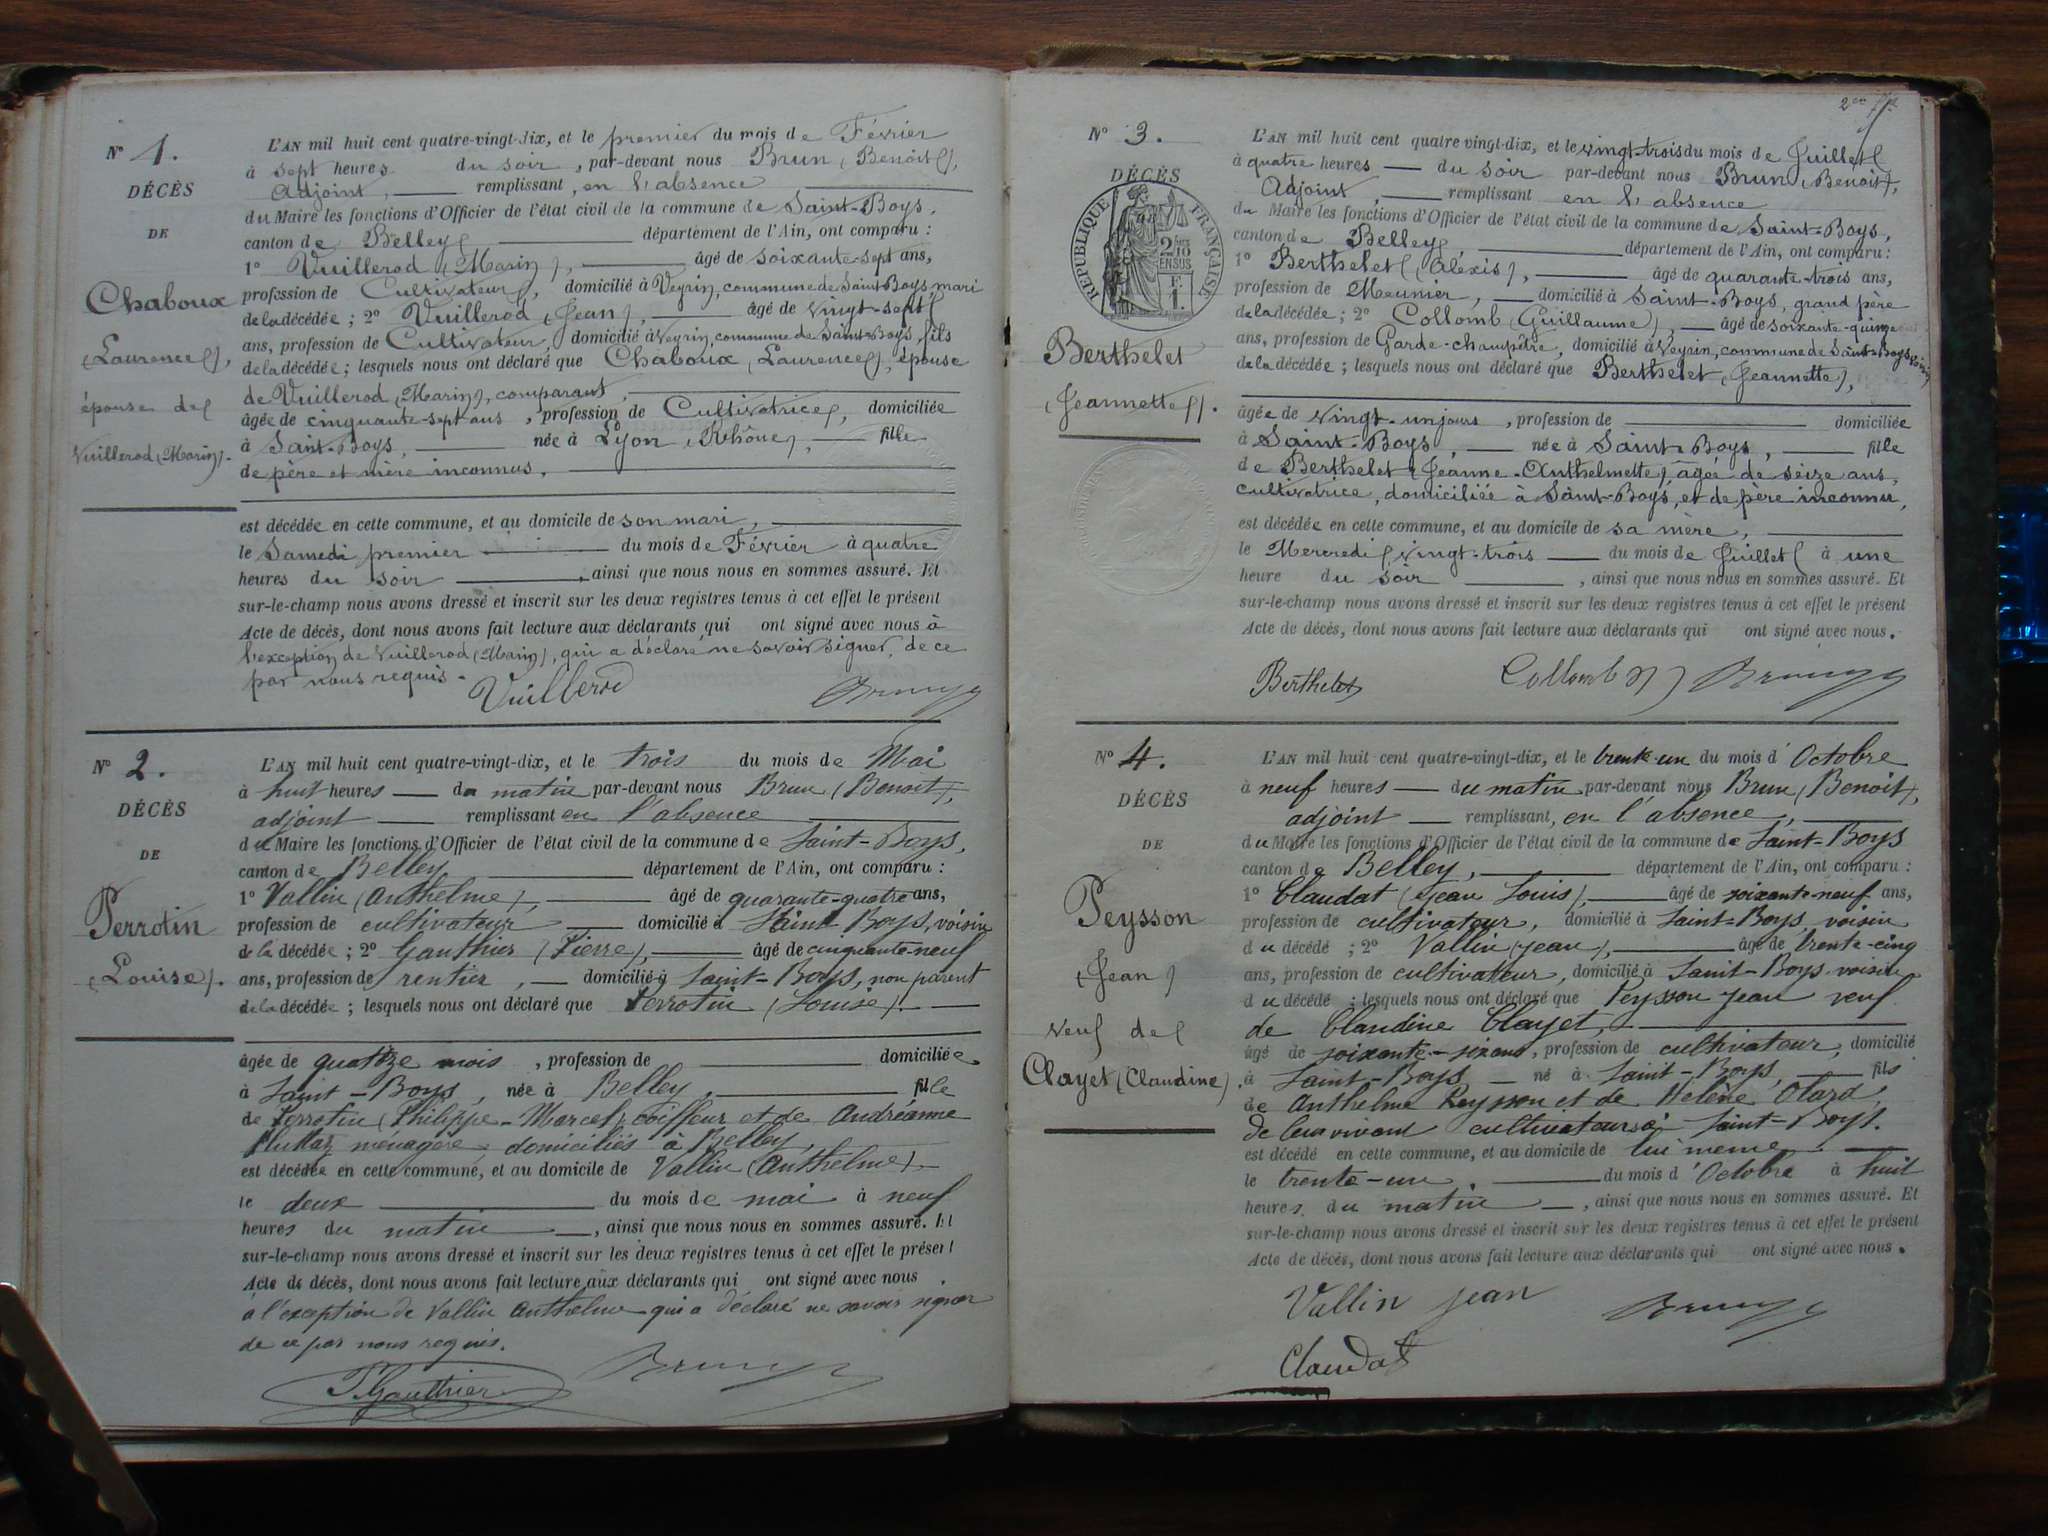 N° 1.
DÉCÈS
DE
Chaboux
(Laurence),
épouse de
Vuillerod (Marin).
L'AN mil huit cent quatre-vingt-dix, et le premier du mois de Février
à sept heures du soir, par-devant nous Brun (Benoit),
Adjoint, remplissant, en l'absence
du Maire les fonctions d'Officier de l'état civil de la commune de Saint-Boys,
canton de Belley département de l'Ain, ont comparu :
1° Vuillerod (Marin), âgé de soixante-sept ans,
profession de Cultivateur, domicilié à Veyrin, commune de Saint-Boys mari
de la décédée ; 2° Vuillerod (Jean), âgé de vingt-sept
ans, profession de Cultivateur, domicilié à Veyrin, commune de Saint-Boys, fils
de la décédée ; lesquels nous ont déclaré que Chaboux (Laurence), épouse
de Vuillerod (Marin), comparant,
âgée de cinquante-sept ans, profession de Cultivatrice, domiciliée
à Saint-Boys, née à Lyon (Rhône), fille
de père et mère inconnus.
est décédée en cette commune, et au domicile de son mari,
le Samedi premier du mois de Février à quatre
heures du soir, ainsi que nous nous en sommes assuré. Et
sur-le-champ nous avons dressé et inscrit sur les deux registres tenus à cet effet le présent
Acte de décès, dont nous avons fait lecture aux déclarants qui ont signé avec nous à
l'exception de Vuillerod (Marin), qui a déclaré ne savoir signer, de ce
par nous requis.
Vuillerod Brun
N° 2.
DÉCÈS
DE
Perrotin
(Louise).
L'AN mil huit cent quatre-vingt-dix, et le trois du mois de Mai
à huit heures du matin par-devant nous Brun (Benoit),
adjoint remplissant en l'absence
du Maire les fonctions d'Officier de l'état civil de la commune de Saint-Boys,
canton de Belley département de l'Ain, ont comparu :
1° Vallin (Anthelme), âgé de quarante-quatre ans,
profession de cultivateur domicilié à Saint Boys, voisin
de la décédée ; 2° Gauthier (Pierre), âgé de cinquante-neuf
ans, profession de rentier, domicilié à Saint-Boys, non parent
de la décédée ; lesquels nous ont déclaré que Perrotin (Louise).
âgée de quatorze mois, profession de domiciliée
à Saint-Boys, née à Belley, fille
de Perrotin (Philippe-Marcel) coiffeur et de Andréanne
ménagère, domiciliés à Belley,
est décédée en cette commune, et au domicile de Vallin (Anthelme).
le deux du mois de mai à neuf
heures du matin, ainsi que nous nous en sommes assuré. Et
sur-le-champ nous avons dressé et inscrit sur les deux registres tenus à cet effet le présent
Acte de décès, dont nous avons fait lecture aux déclarants qui ont signé avec nous.
à l'exception de Vallin Anthelme qui a déclaré ne savoir signer
de ce par nous requis.
P Gauthier Brun
N° 3.
DÉCÈS
RÉPUBLIQUE FRANÇAISE
2/10 EN SUS
F. 1.
Berthelet
(Jeannette).
L'AN mil huit cent quatre vingt-dix, et le vingt-trois du mois de Juillet
à quatre heures du soir par-devant nous Brun (Benoit),
Adjoint, remplissant en l'absence
du Maire les fonctions d'Officier de l'état civil de la commune de Saint-Boys,
canton de Belley, département de l'Ain, ont comparu :
1° Berthelet (Aléxis), âgé de quarante-trois ans,
profession de Meunier, domicilié à Saint-Boys, grand père
de la décédée ; 2° Collomb (Guillaume), âgé de soixante-quinze
ans, profession de Garde-champêtre, domicilié à Veyrin, commune de Saint-Boys voisin
de la décédée ; lesquels nous ont déclaré que Berthelet (Jeannette),
âgée de vingt-un jours, profession de domiciliée
à Saint-Boys, née à Saint-Boys, fille
de Berthelet (Jeanne-Anthelmette), âgée de seize ans,
cultivatrice, domiciliée à Saint-Boys, et de père inconnu,
est décédée en cette commune, et au domicile de sa mère,
le Mercredi vingt-trois du mois de Juillet à une
heure du soir, ainsi que nous nous en sommes assuré. Et
sur-le-champ nous avons dressé et inscrit sur les deux registres tenus à cet effet le présent
Acte de décès, dont nous avons fait lecture aux déclarants qui ont signé avec nous.
Berthelet Collomb Brun
N° 4.
DÉCÈS
DE
Peysson
(Jean)
veuf de
Clayet (Claudine).
L'AN mil huit cent quatre-vingt-dix, et le trente-un du mois d'Octobre
à neuf heures du matin par-devant nous Brun (Benoit),
adjoint remplissant, en l'absence,
du Maire les fonctions d'Officier de l'état civil de la commune de Saint-Boys
canton de Belley, département de l'Ain, ont comparu :
1° Claudat (Jean Louis), âgé de soixante-neuf ans,
profession de cultivateur, domicilié à Saint-Boys, voisin
du décédé ; 2° Vallin (Jean), âgé de trente-cinq
ans, profession de cultivateur, domicilié à Saint-Boys voisin
du décédé ; lesquels nous ont déclaré que Peysson Jean veuf
de Claudine Clayet,
âgé de soixante-six ans, profession de cultivateur, domicilié
à Saint-Boys né à Saint-Boys, fils
de Anthelme Peysson et de Hélène Olard,
de leur vivant cultivateurs à Saint-Boys.
est décédé en cette commune, et au domicile de lui même
le trente-un, du mois d'Octobre à huit
heures du matin, ainsi que nous nous en sommes assuré. Et
sur-le-champ nous avons dressé et inscrit sur les deux registres tenus à cet effet le présent
Acte de décès, dont nous avons fait lecture aux déclarants qui ont signé avec nous.
Vallin Jean Brun
Claudat